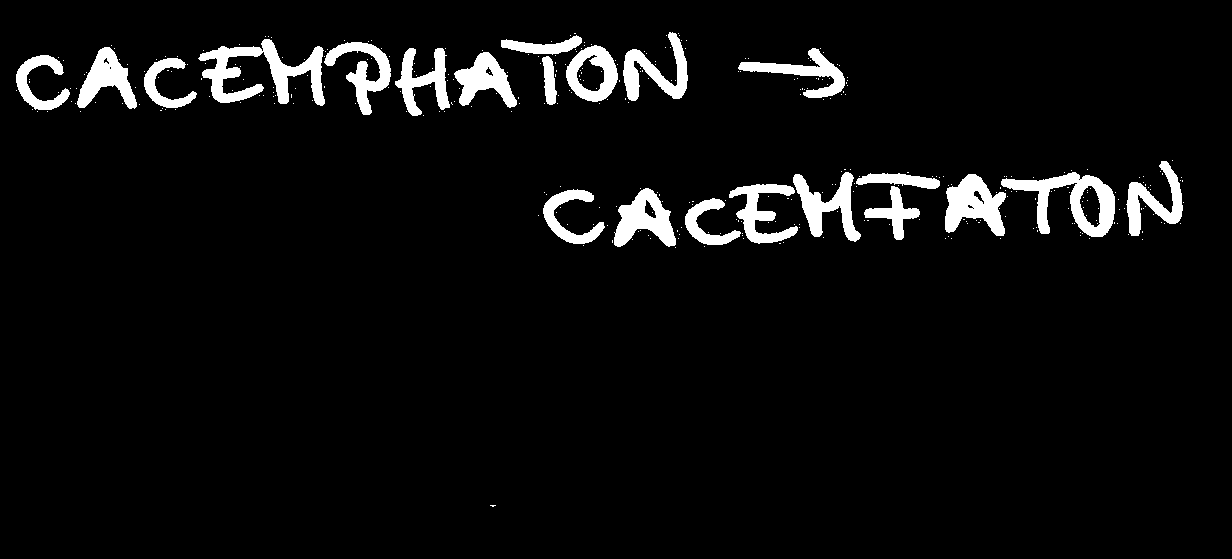 CACEMPHATON →
CACEMFATON